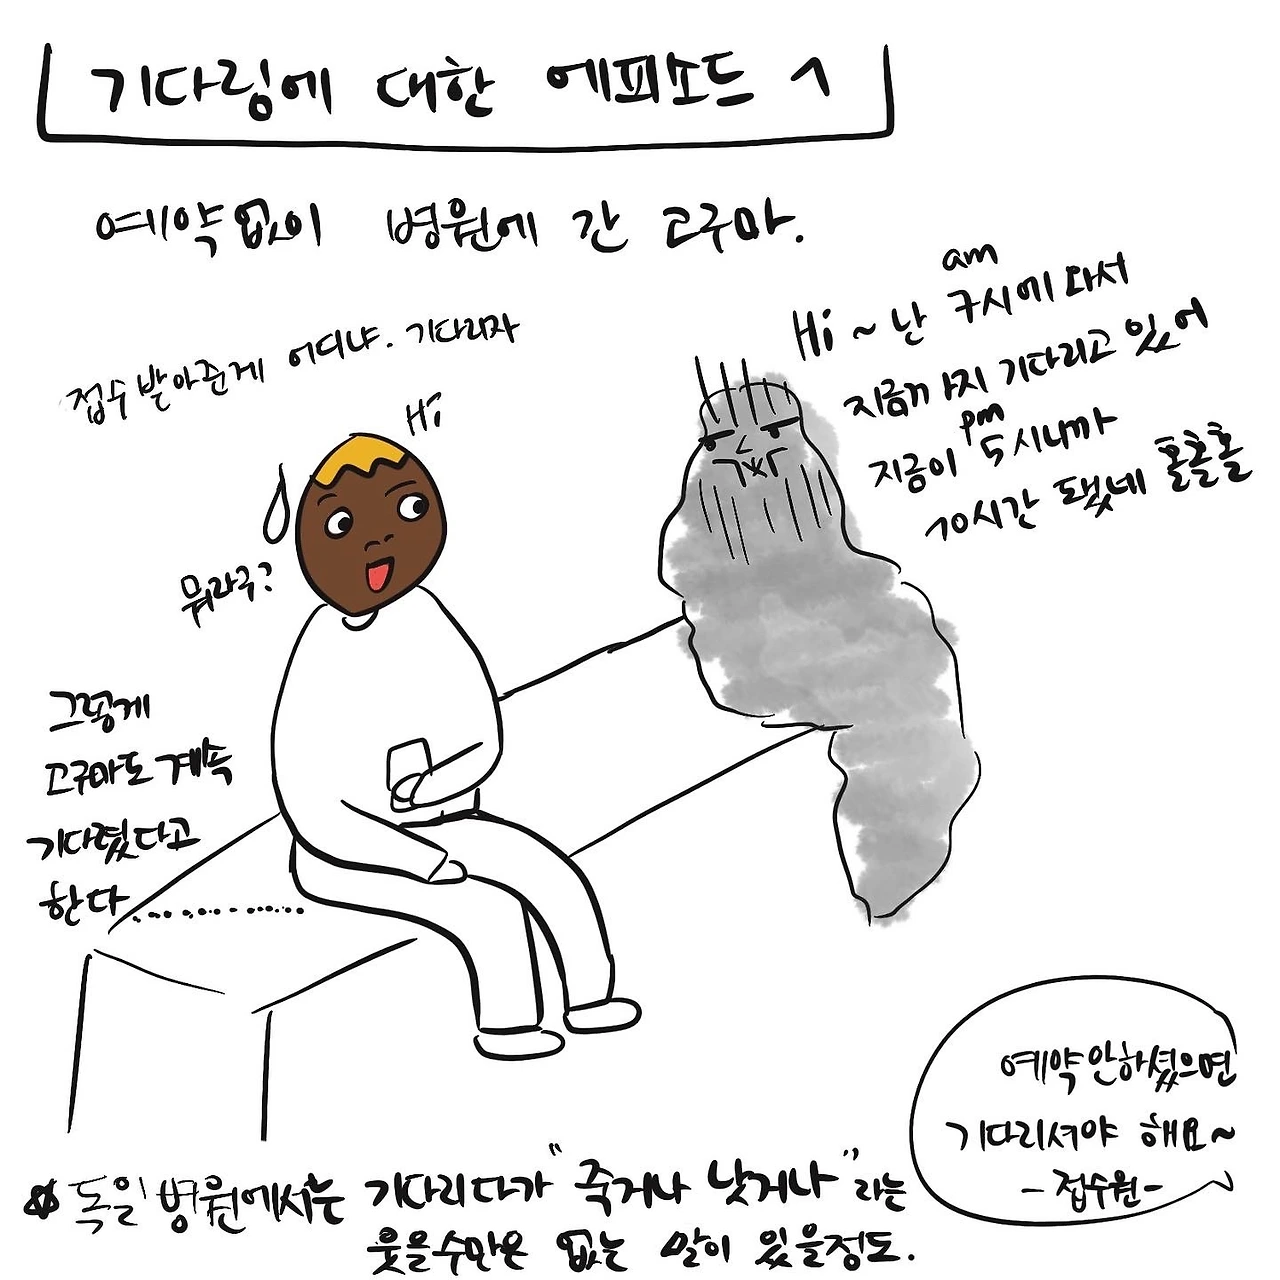 기다림에 대한 에피소드 1
예약없이 병원에 간 고구마.
접수 받아준게 어디냐. 기다리자
Hi
뭐라구?
am
Hi ~ 난 7시에 와서
지금까지 기다리고 있어
pm
지금이 5시니까
10시간 됐네 홀홀홀
그렇게
고구마도 계속
기다렸다고
한다..............
예약 안하셨으면
기다리셔야 해요~
- 접수원 -
※ 독일 병원에서는 기다리다가 "죽거나 낫거나" 라는
웃을수만은 없는 말이 있을정도.